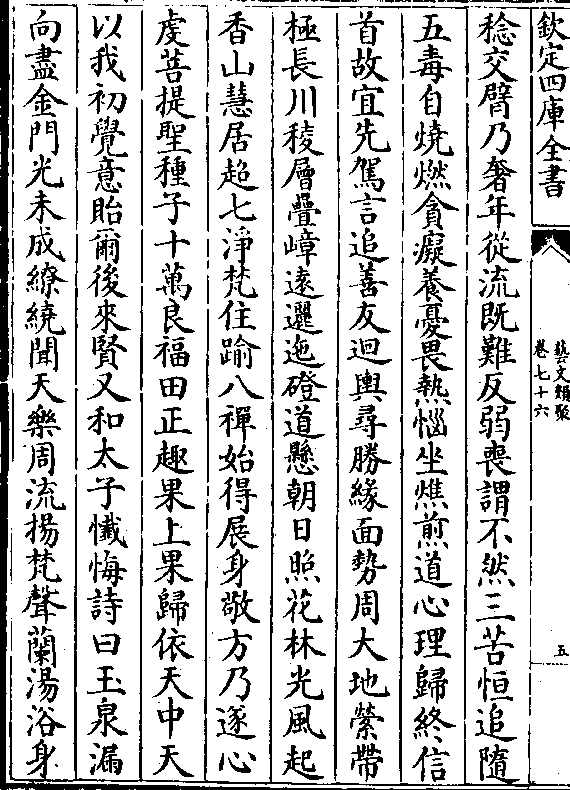 欽定四庫全書
藝文類聚
卷七十六
五
稔交臂乃奢年從流既難反弱喪謂不然三苦恒追隨
五毒自燒燃貪癡養憂畏熱惱坐燋煎道心理歸終信
首故宜先駕言追善友迴輿尋勝緣面勢周大地縈帶
極長川稜層疊嶂遠邐迤磴道懸朝日照花林光風起
香山慧居超七淨梵住踰八禪始得展身敬方乃遂心
虔菩提聖種子十萬良福田正趣果上果歸依天中天
以我初覺意貽爾後來賢又和太子懺悔詩曰玉泉漏
向盡金門光未成繚繞聞天樂周流揚梵聲蘭湯浴身